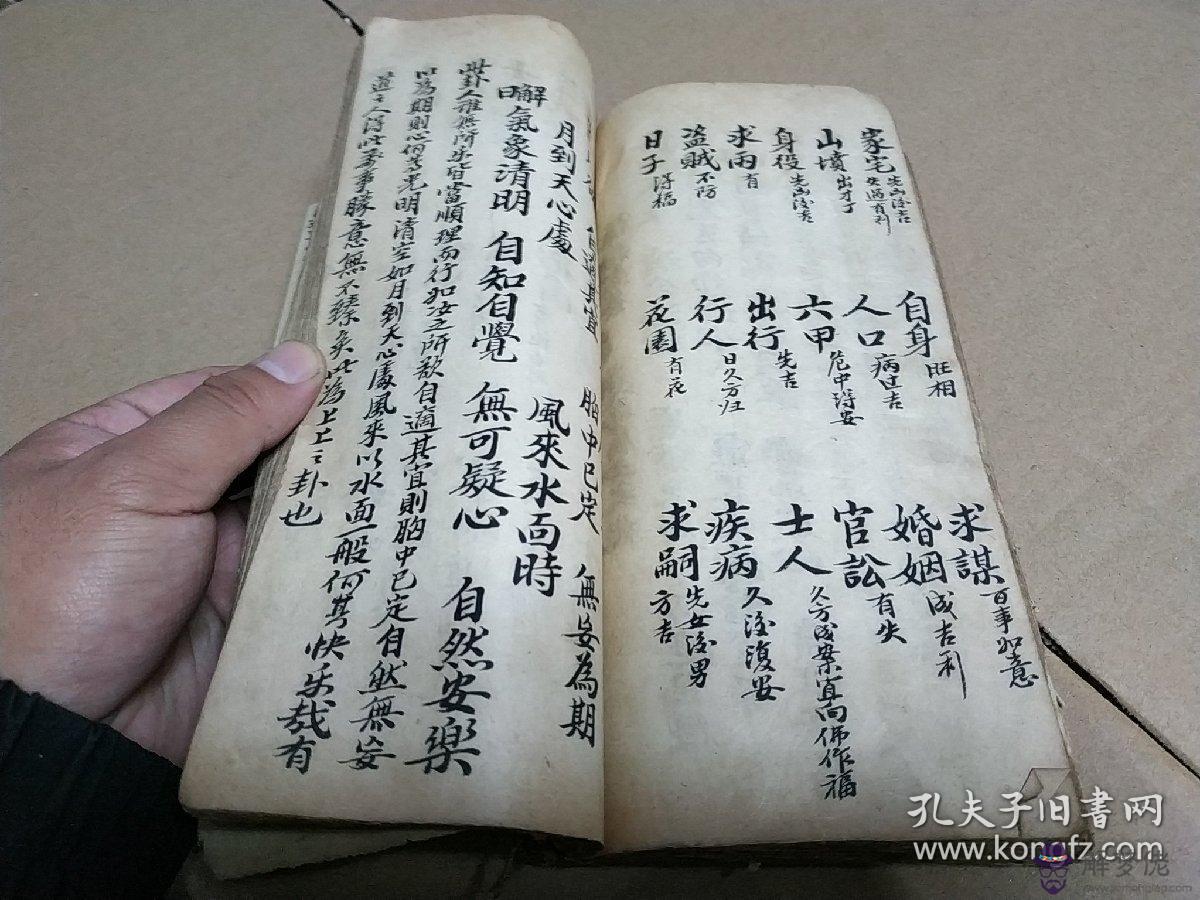 家宅 先凶後吉
山墳 出才丁
身役 先凶後吉
求雨 有
盜賊 不防
日子 得福
自身 旺相
人口 病过吉
六甲 危中得安
出行 先吉
行人 日久方归
花園 有花
求謀 百事如意
婚姻 成吉利
官訟 有失
士人 久方成業宜向佛作福
疾病 久後復安
求嗣 先女後男 方吉
自適其宜 胸中已定 無妄為期
月到天心處 風來水面時
解曰 氣象清明 自知自覺 無可疑心 自然安樂
此卦人雖無所失皆當順理而行如汝之所欲自適其宜則胸中已定自然無妄
以為期則心何等光明清空如月到天心處風來以水面一般何其快乐哉有
道之人得此萬事勝意無不臻矣此為上上之卦也
孔夫子旧書网
www.kongfz.com
解梦佬